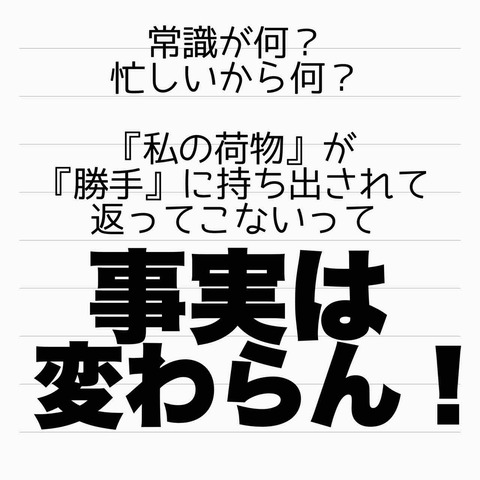 常識が何？
忙しいから何？
『私の荷物』が
『勝手』に持ち出されて
返ってこないって
事実は
変わらん！